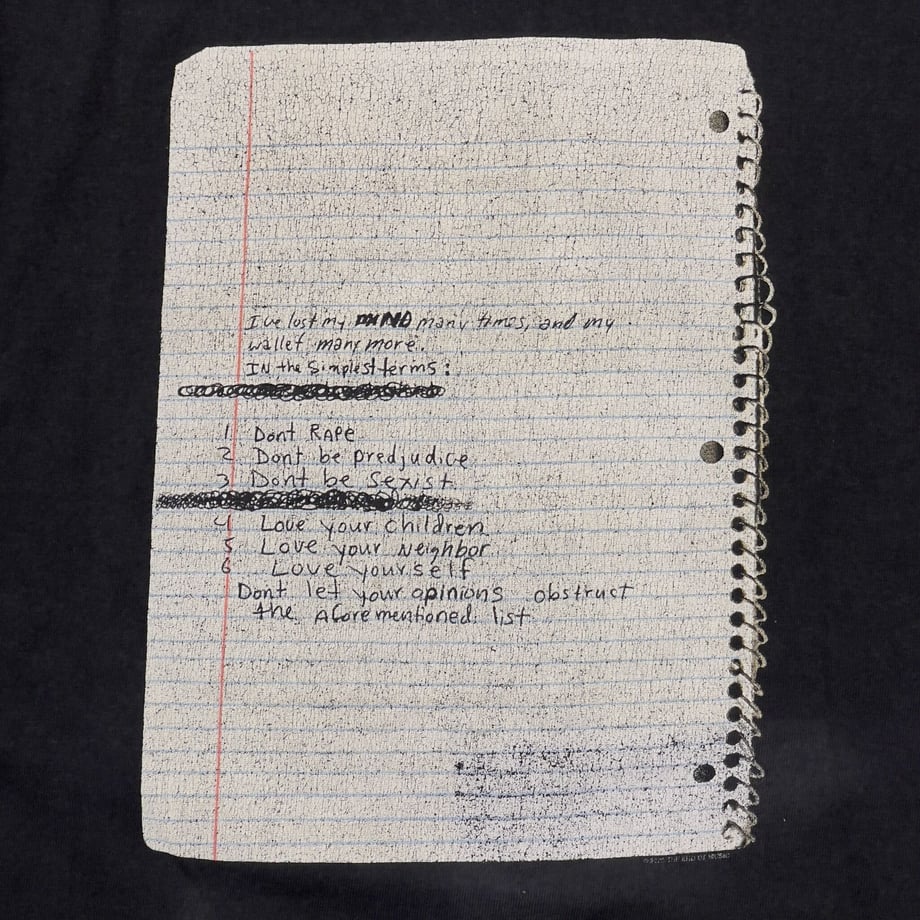 I've lost my MIND many times, and my
wallet many more.
IN the Simplest terms:
1 Dont RAPE
2 Dont be predjudice
3 Dont be Sexist
4 Love your children
5 Love your Neighbor
6 Love yourself
Dont let your opinions obstruct
the aforementioned list
THE END OF MUSIC